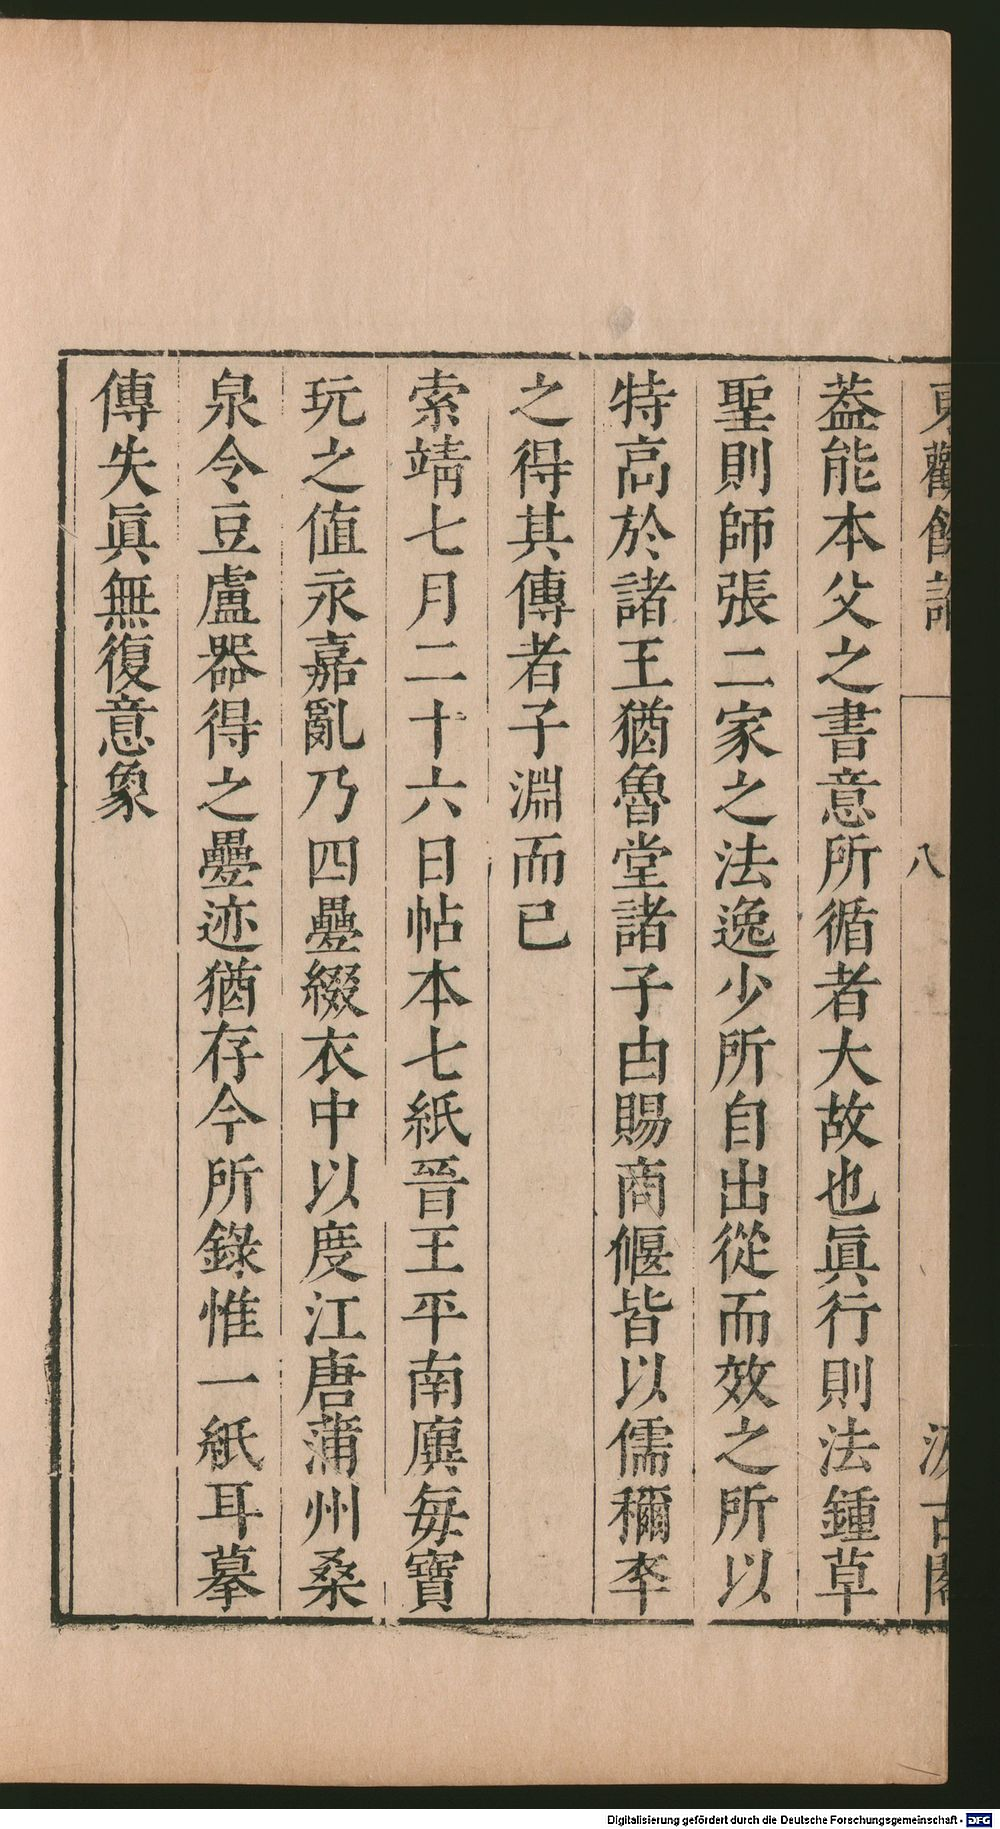 東觀餘論
八
汲古閣
葢能本父之書意所循者大故也眞行則法鍾草
聖則師張二家之法逸少所自出從而效之所以
特高於諸王猶魯堂諸子由賜商偃皆以儒稱卒
之得其傳者子淵而已
索靖七月二十六日帖本七紙晉王平南廙每寶
玩之値永嘉亂乃四疊綴衣中以度江唐蒲州桑
泉令豆盧器得之疊迹猶存今所錄惟一紙耳摹
傳失眞無復意象
Digitalisierung gefördert durch die Deutsche Forschungsgemeinschaft - DFG